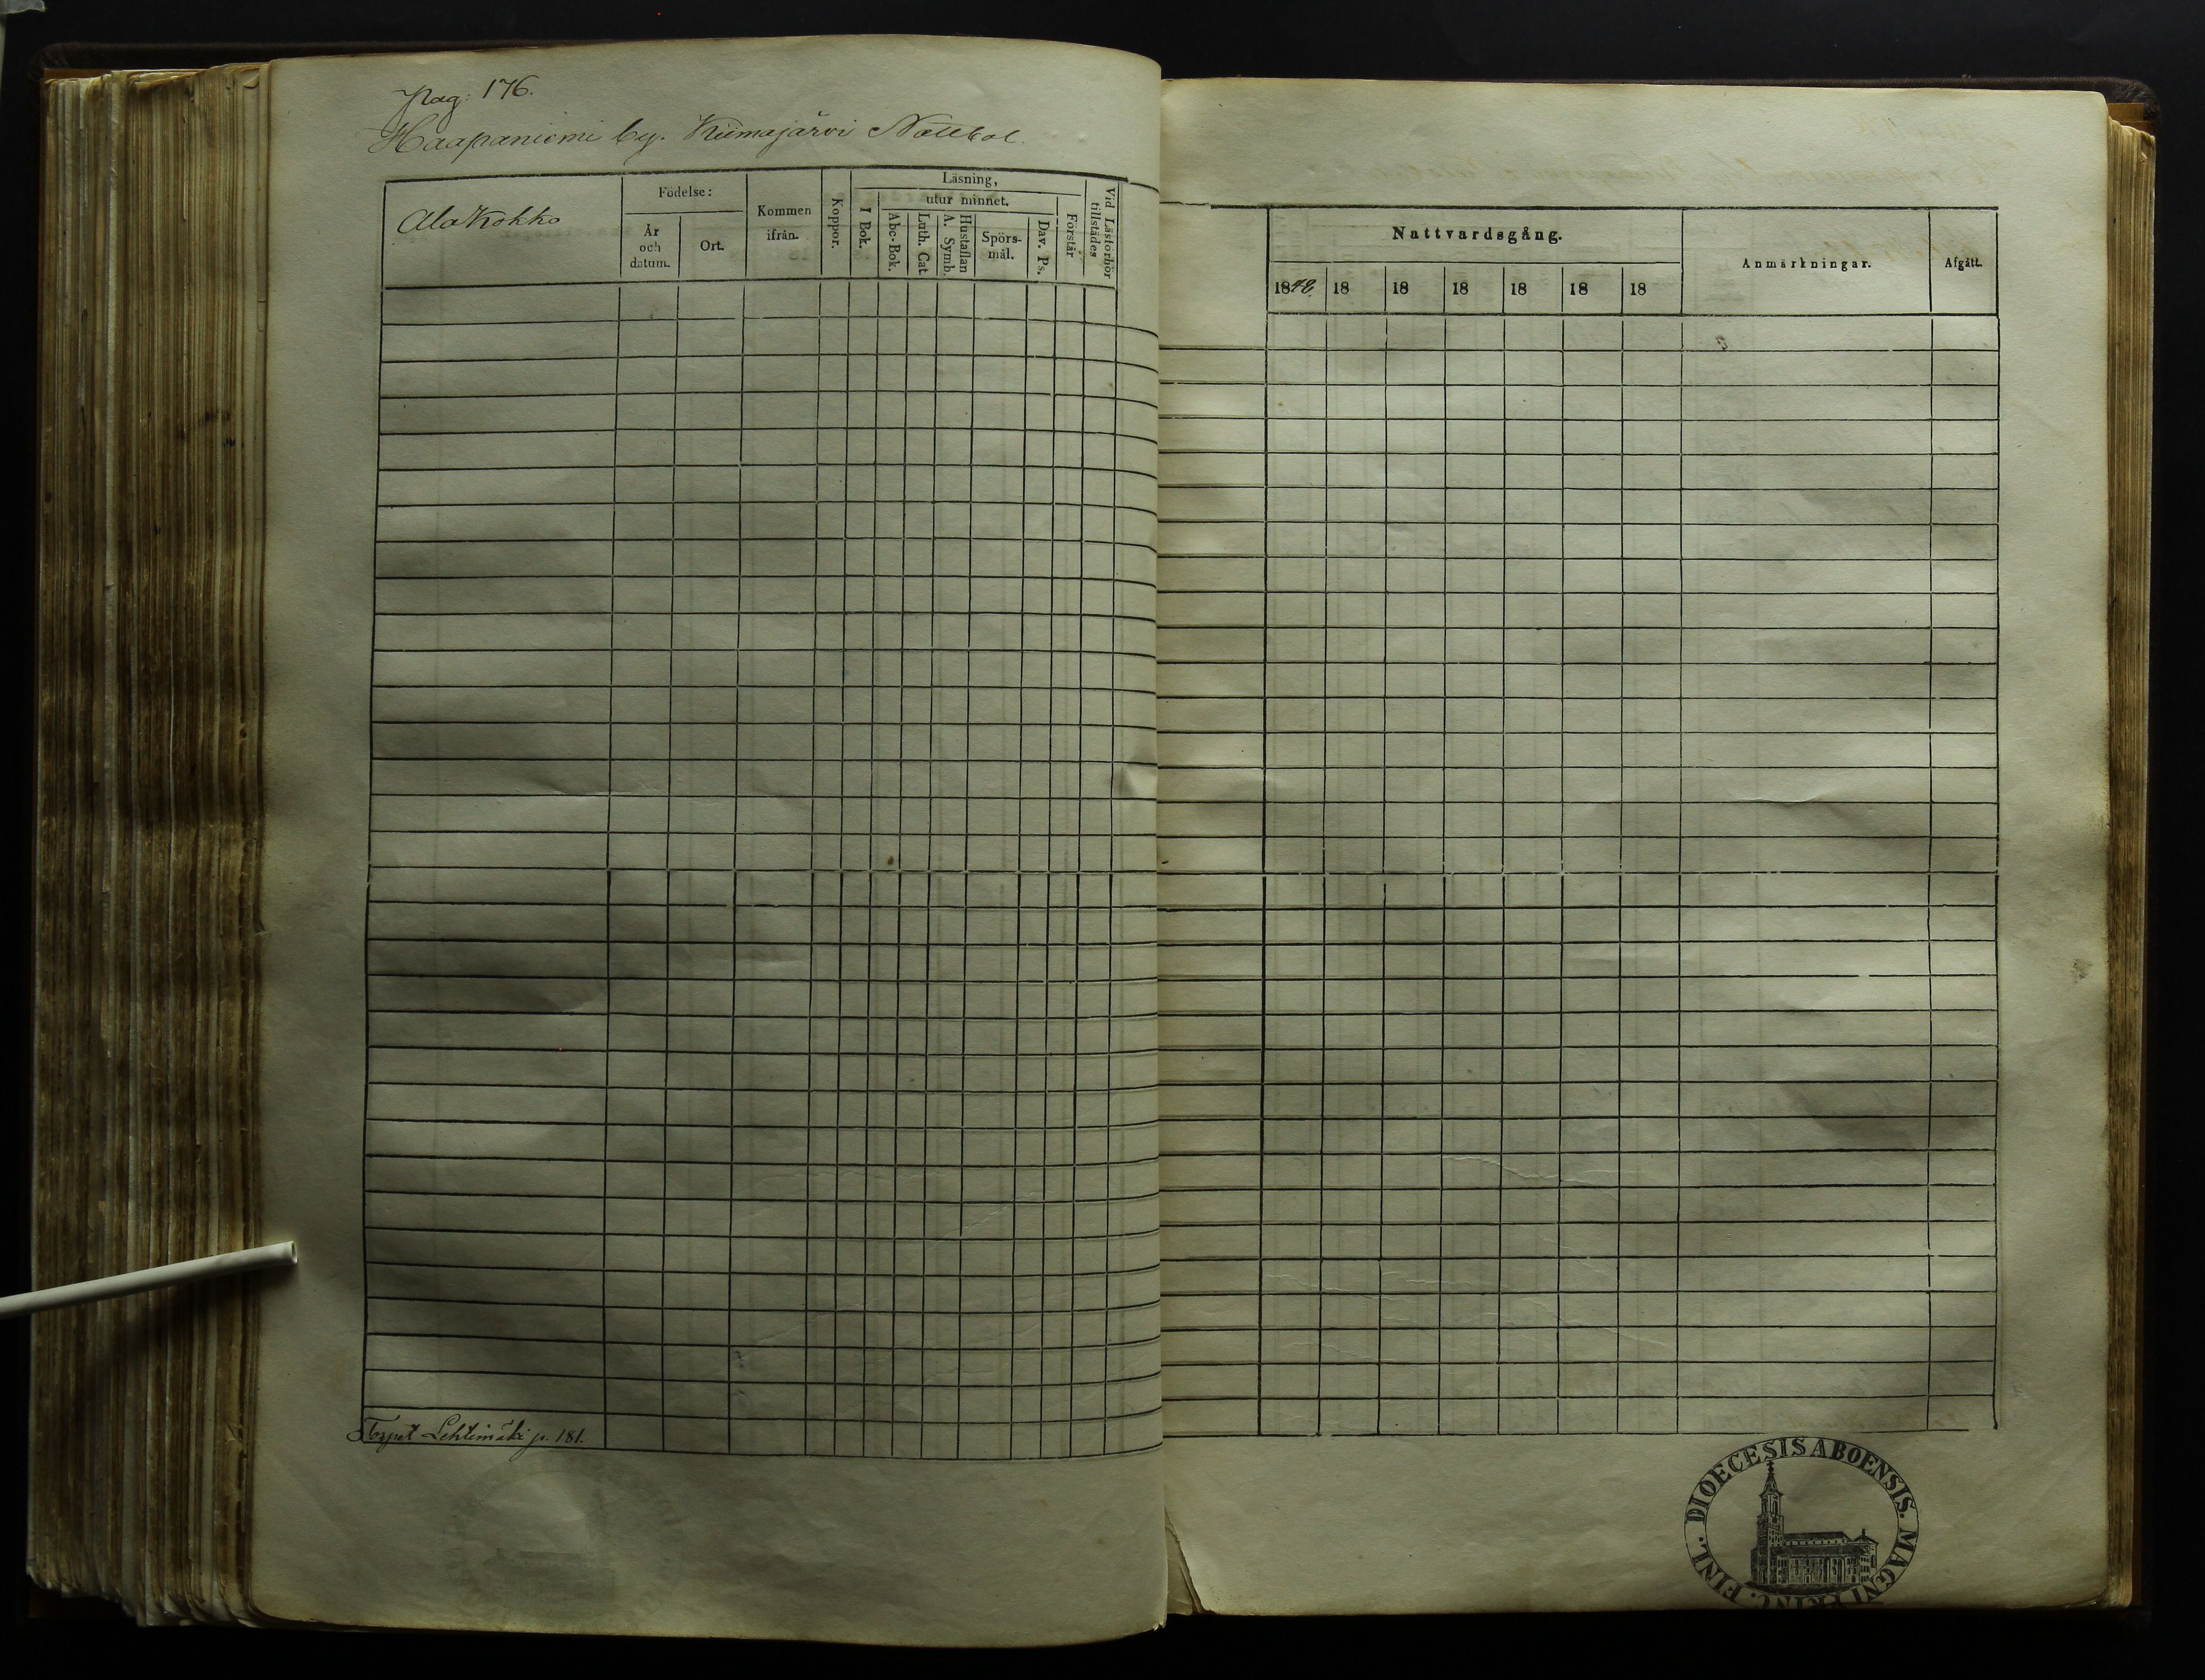 Pag: 176.
Haapaniemi by. Kiimajärvi Nottbol.
Ala Kokko
Födelse:
År
och
datum.
Ort.
Kommen
ifrån.
Koppor.
Läsning,
I Bok.
utur minnet.
Abc-Bok.
Luth. Cat.
Hustaflan
A. Symb.
Spörs-
mål.
Dav. Ps.
Förstår
Vid Läsförhör
tillstädes
Torpet Lehtimäki p. 181.
Nattvardsgång.
1842. 18 18 18 18 18 18
Anmärkningar.
Afgått.
DIOECESIS ABOENSIS. MAGNI PRINC. FINL.